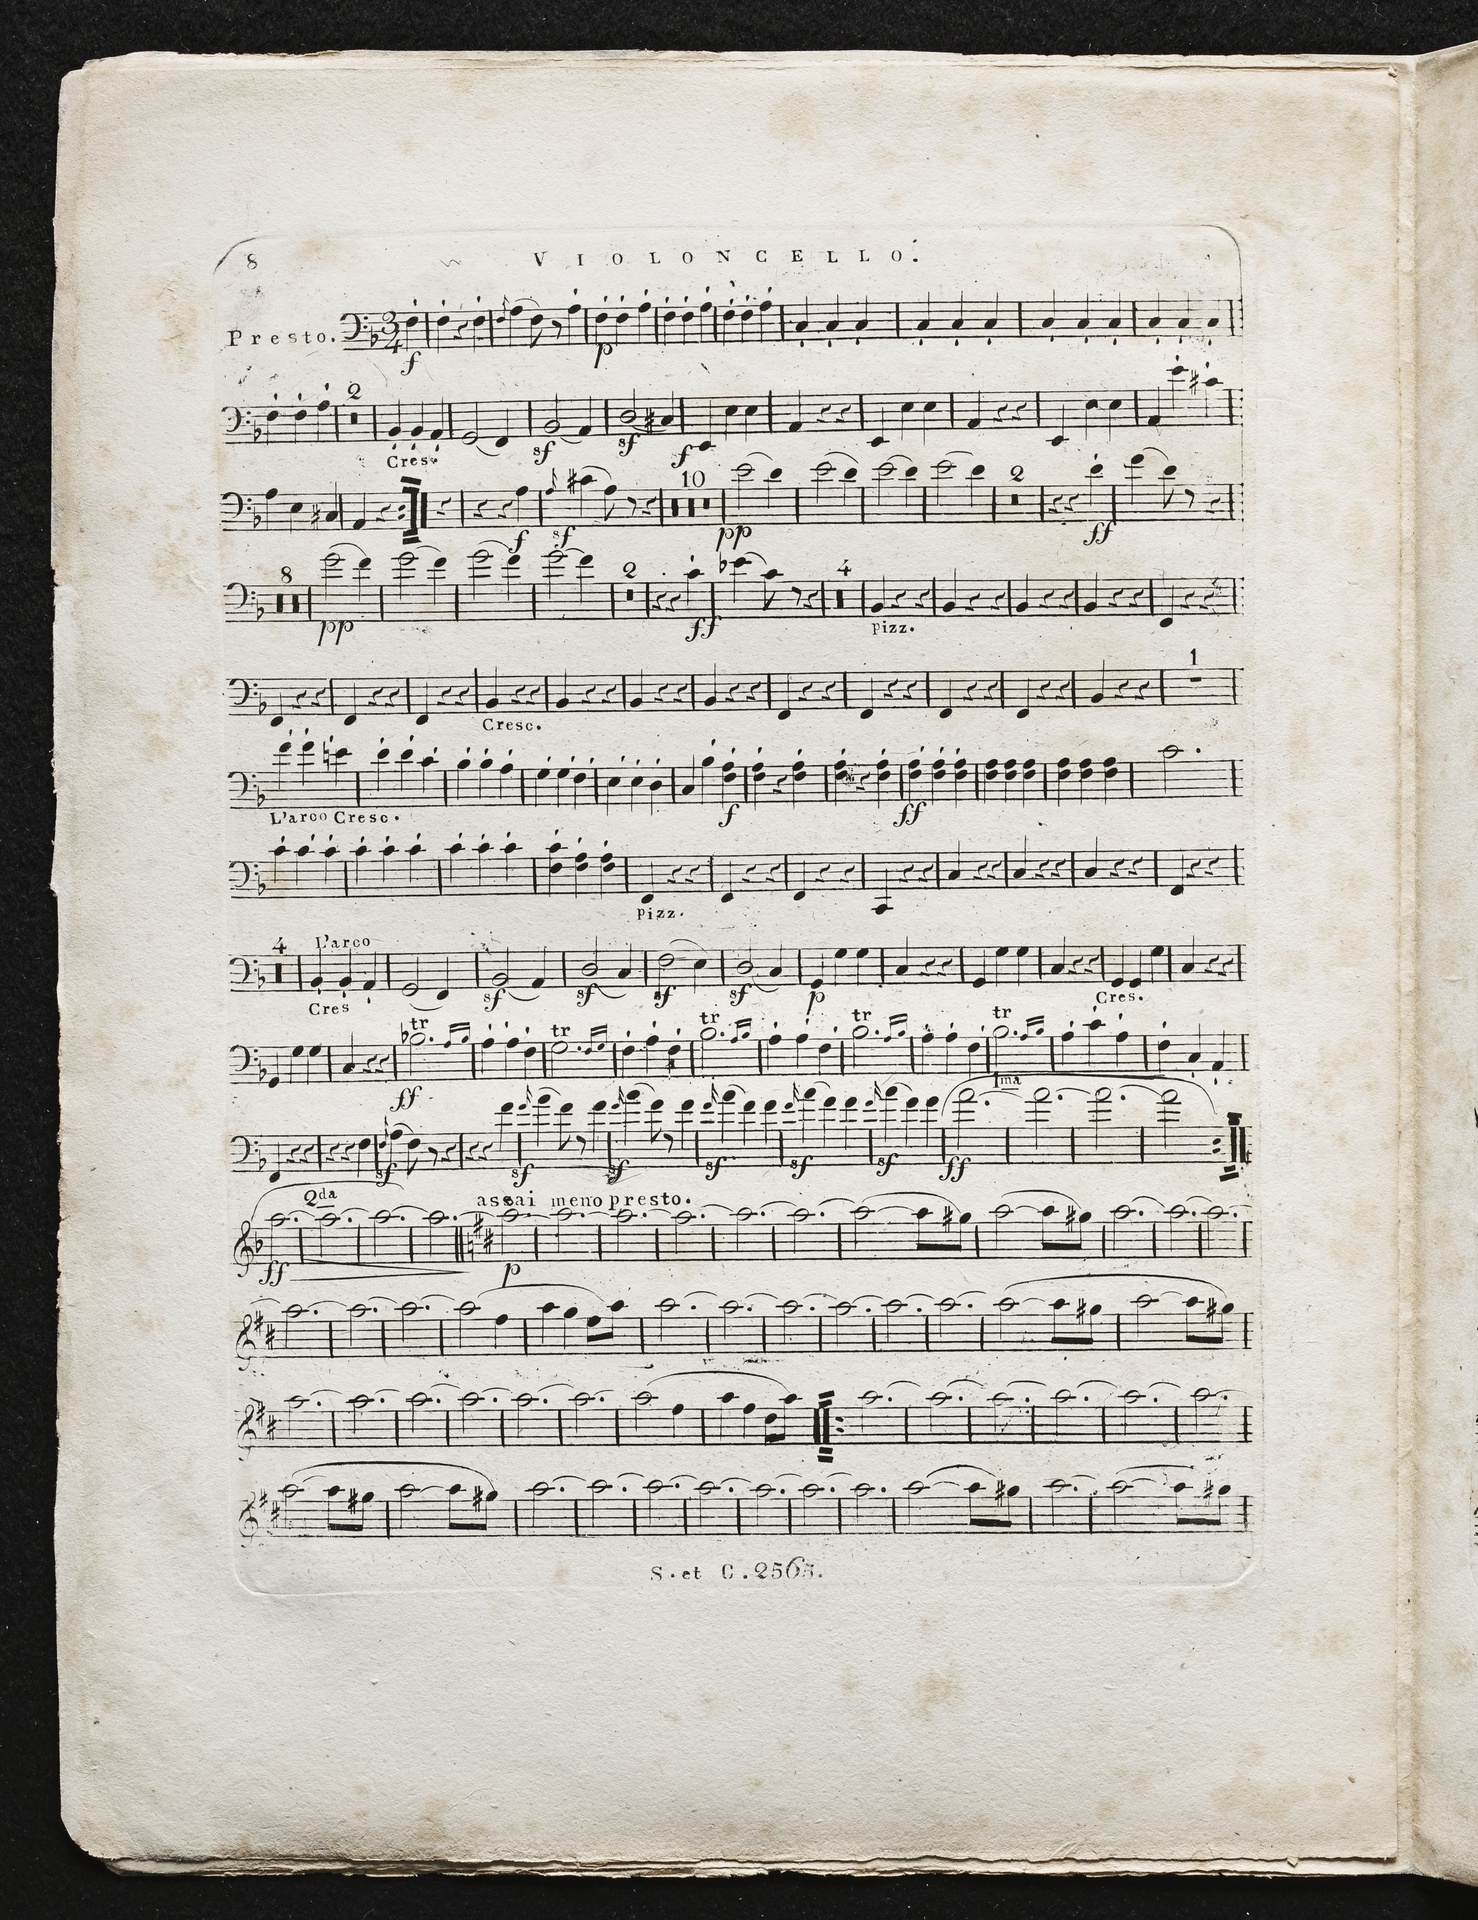 8 VIOLONCELLO.
Presto. 3 4 f p
2 Cres. sf sf f
10 2 f sf pp ff
8 2 4 pp ff pizz.
1 Cresc.
L'arco Cresc. f ff
pizz.
4 L'arco Cres sf sf sf sf p Cres.
tr tr tr tr tr ff
1ma sf sf sf sf sf sf ff
2da assai meno presto. ff p
S. et C. 2565.